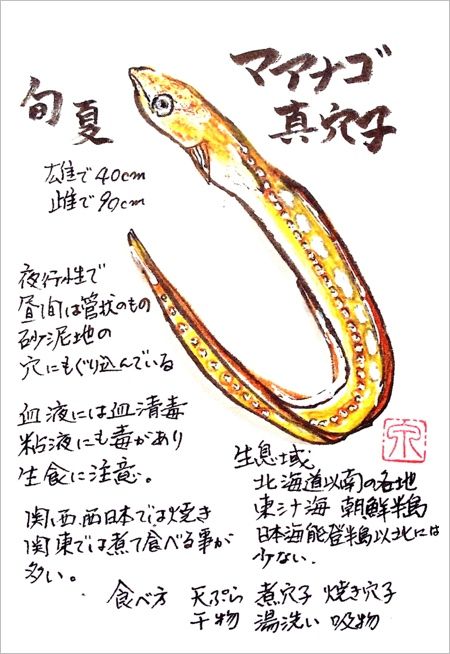 マアナゴ
真穴子
旬 夏
雄で40cm
雌で90cm
夜行性で
昼間は管状のもの
砂泥地の
穴にもぐり込んでいる
血液には血清毒
粘液にも毒があり
生食に注意。
関西、西日本では焼き
関東では煮て食べる事が
多い。
生息域
北海道以南の各地
東シナ海 朝鮮半島
日本海能登半島以北には
少ない.
食べ方 天ぷら 煮穴子 焼き穴子
干物 湯洗い 吸物